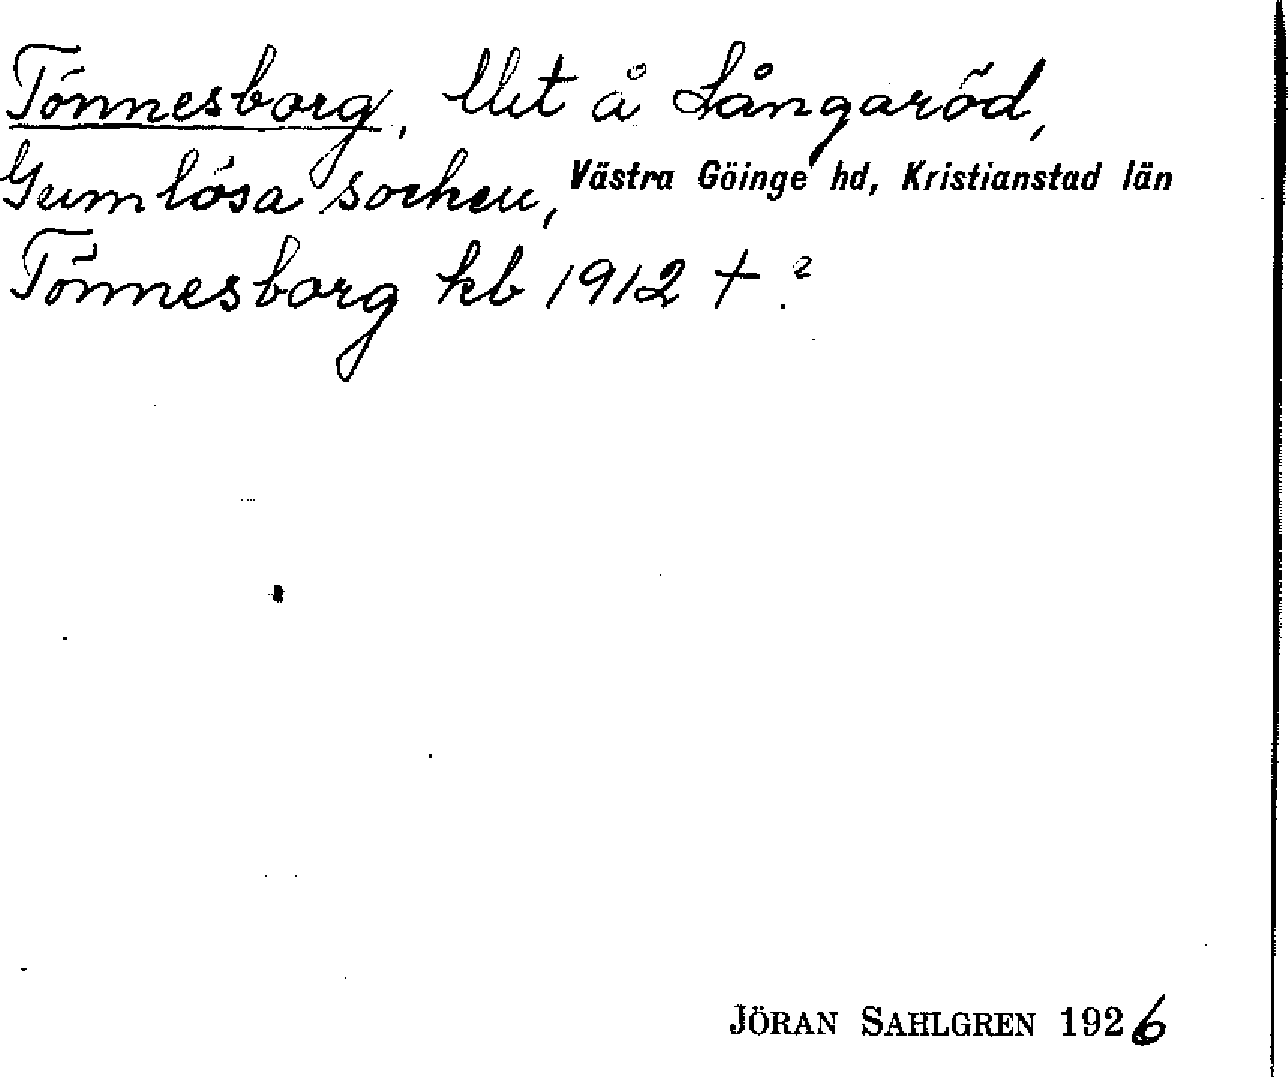 Tönnesborg, llet å Långaröd,
Gumlösa socken, Västra Göinge hd, Kristianstad län
Tönnesborg kb 1912 + ?
JÖRAN SAHLGREN 1926